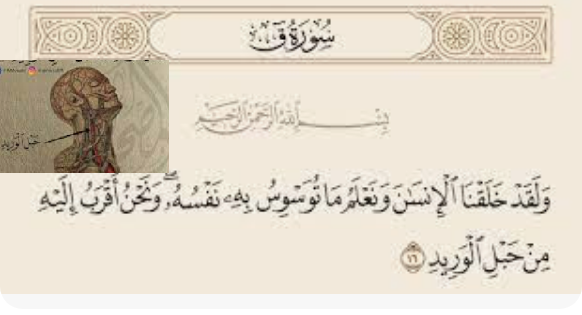 سُورَةُ ق
بِسْمِ ٱللَّهِ ٱلرَّحْمَٰنِ ٱلرَّحِيمِ
حبل الوريد
وَلَقَدْ خَلَقْنَا ٱلْإِنسَٰنَ وَنَعْلَمُ مَا تُوَسْوِسُ بِهِۦ نَفْسُهُۥۖ وَنَحْنُ أَقْرَبُ إِلَيْهِ
مِنْ حَبْلِ ٱلْوَرِيدِ ١٦